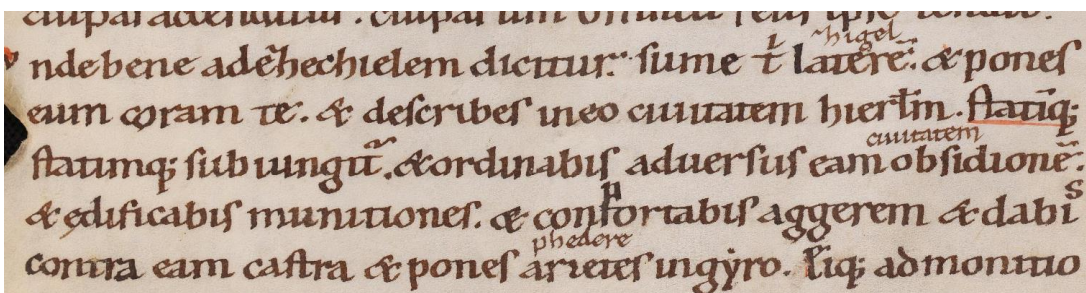 higel
ndebene adezhechielem dicitur. sume t̄ laterē. & pones
eum coram te. & describes ineo ciuitatem hierl̄m. statīq;
ciuitatem
statimq; subiungit̄. &ordinabis aduersus eam obsidionē.
& ędificabis munitiones. & conportabis aggerem & dabis
phedere
contra eam castra & pones arietes ingyro. admonitio